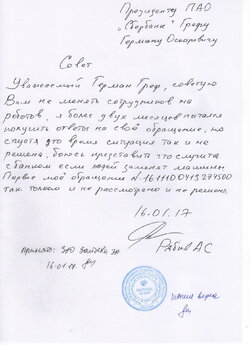 Президенту ПАО
„Сбербанк" Грефу
Герману Оскаровичу
Совет
Уважаемый Герман Греф, советую
Вам не менять сотрудников на
роботов, я более двух месяцев пытался
получить ответы на своё обращение, но
спустя это время ситуация так и не
решена, боюсь представить что случится
с банком если людей заменят машины
Первое моё обращение N
так толком и не рассмотрено и не решена.
16.01.17
Рябив АС
16.01.17
копия верна